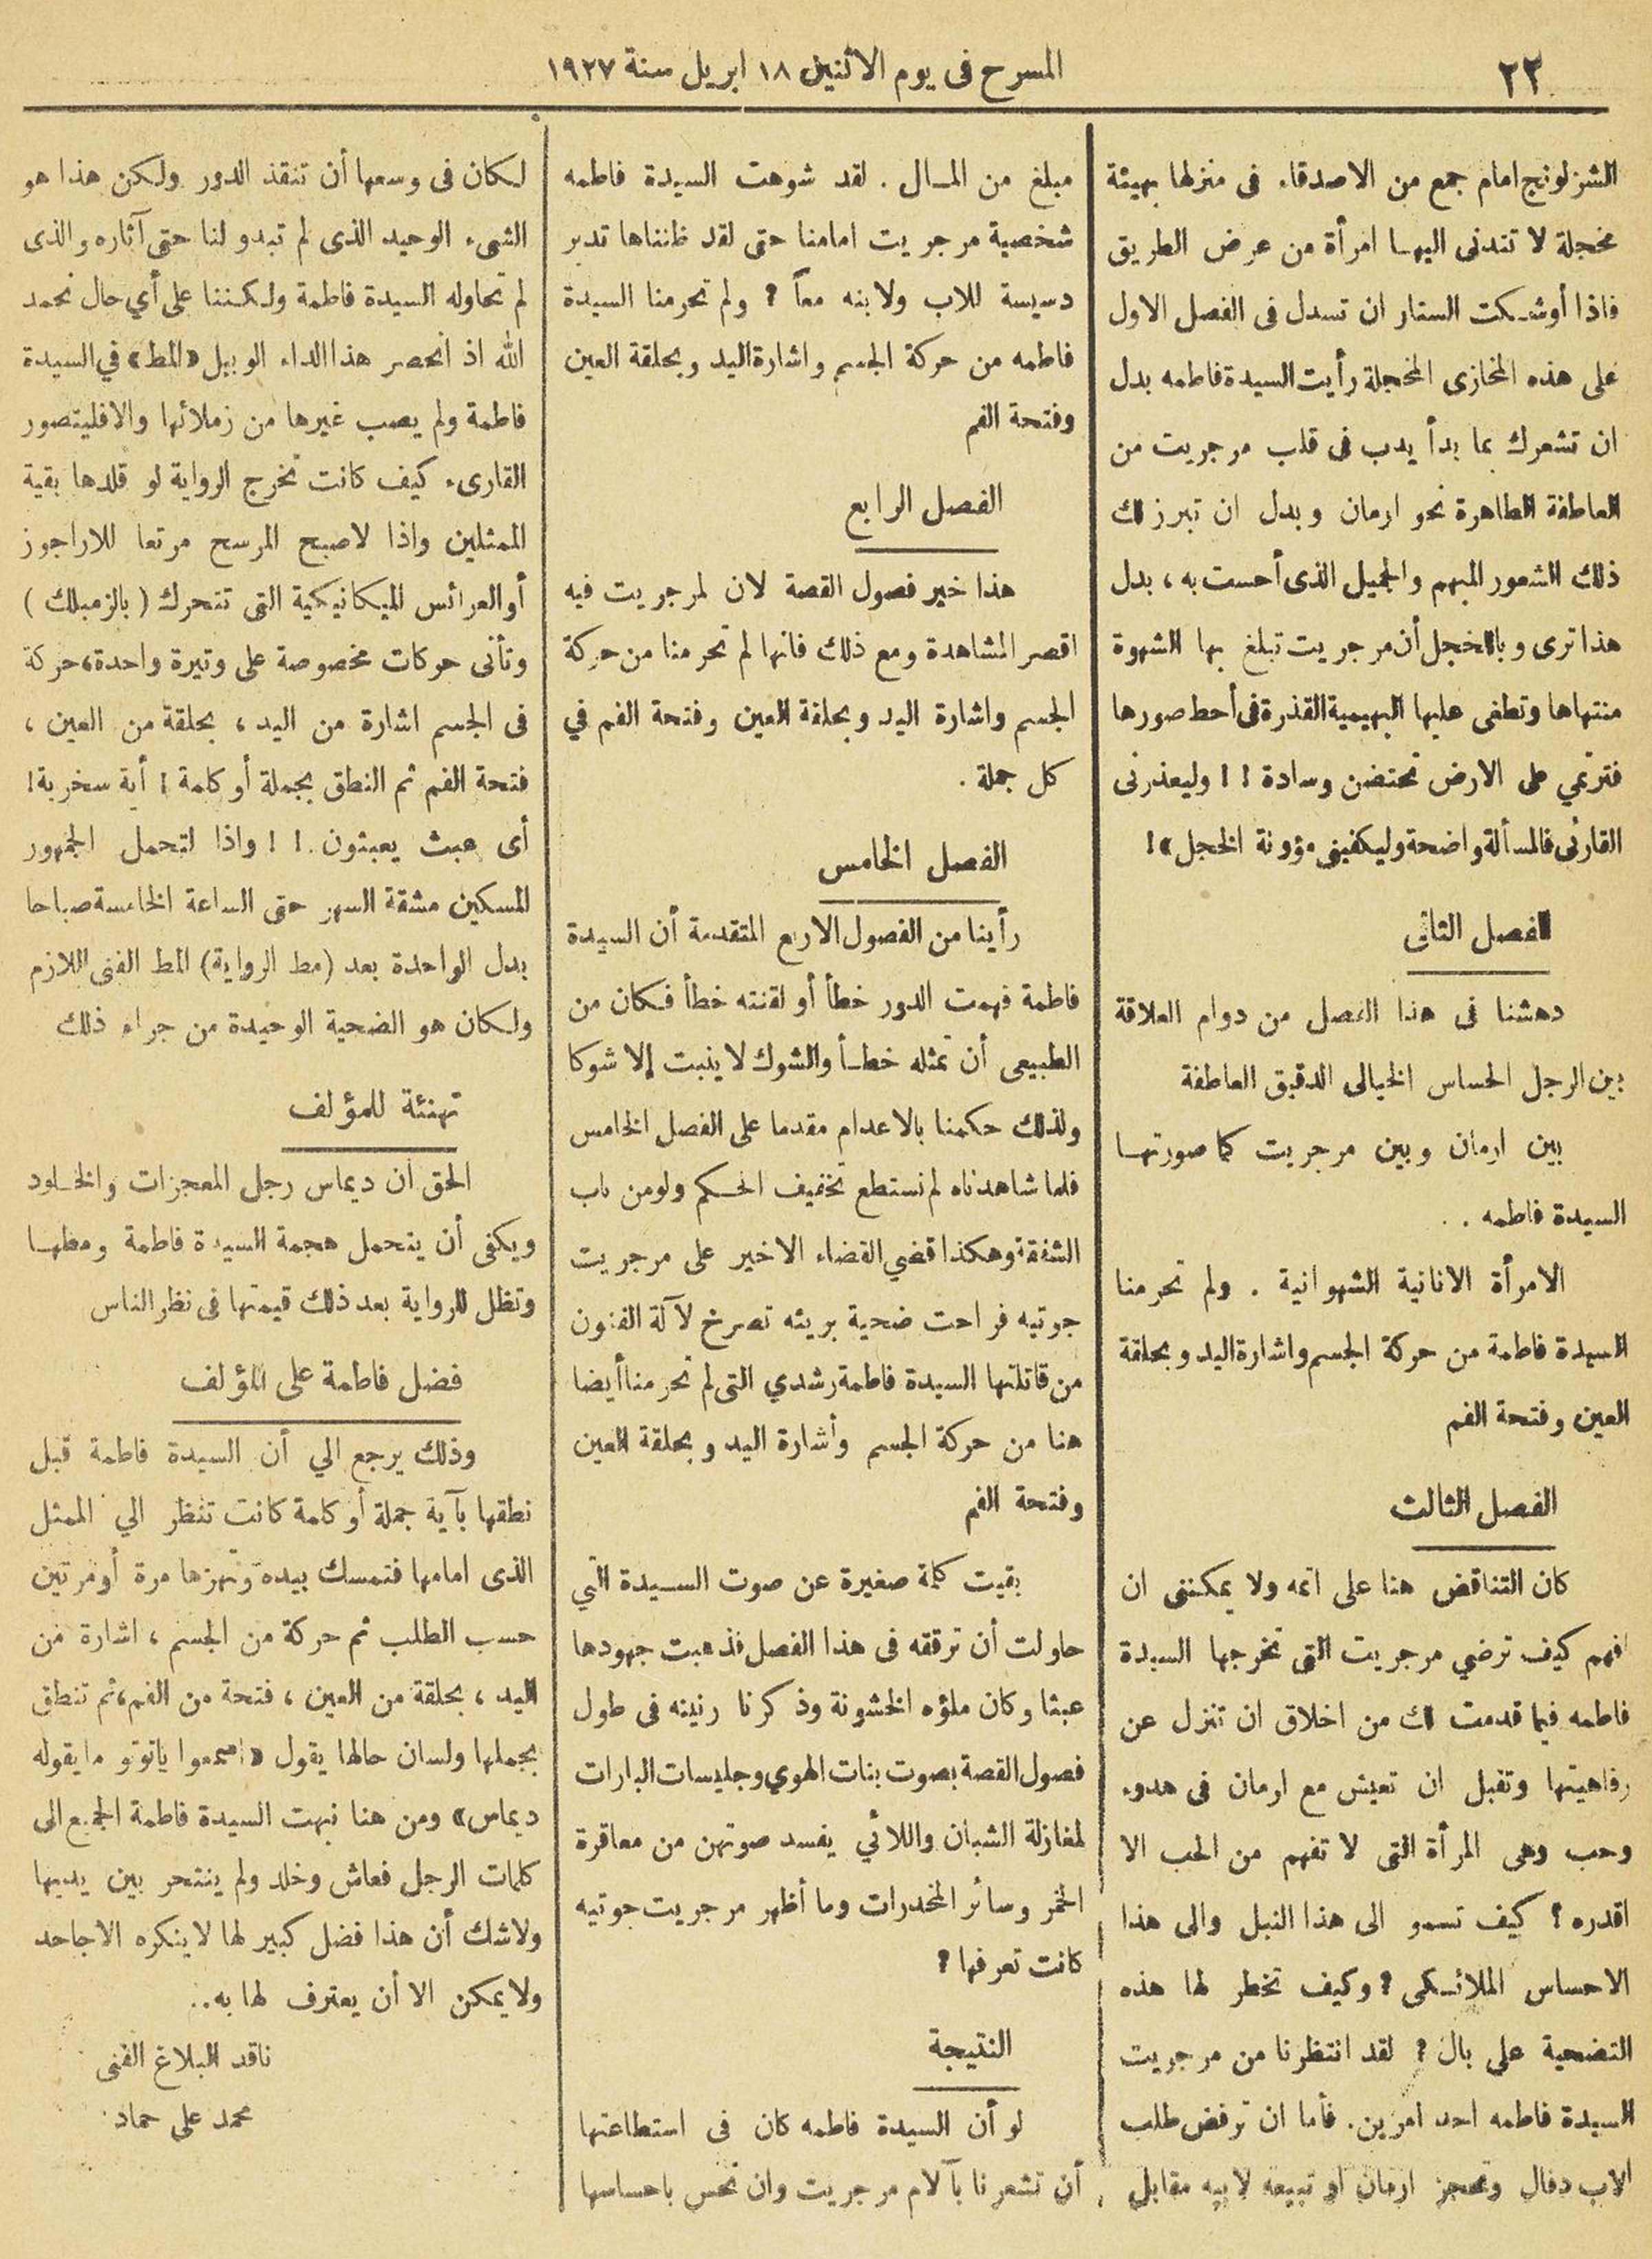 ٢٣
المسرح فى يوم الاثنين ١٨ ابريل سنة ١٩٢٧
الشزلونج امام جمع من الاصدقاء فى منزلها بهيئة
مخجلة لا تتدنى اليها امرأة من عرض الطريق
فاذا أوشكت الستار ان تسدل فى الفصل الاول
على هذه المخازى المخجلة رأيت السيدة فاطمه بدل
ان تشعرك بما بدأ يدب فى قلب مرجريت من
العاطفة الطاهرة نحو ارمان وبدل ان تبرز لك
ذلك الشعور المبهم والجميل الذى أحست به ، بدل
هذا ترى ويا للخجل أن مرجريت تبلغ بها الشهوة
منتهاها وتطغى عليها البهيمية القذرة فى أحط صورها
فترتمي على الارض تحتضن وسادة ! ! وليعذرنى
القارئ فالمسألة واضحة وليكفينى مؤونة الخجل » !
الفصل الثانى
دهشنا فى هذا الفصل من دوام العلاقة
بين الرجل الحساس الخيالى الدقيق العاطفة
بين ارمان وبين مرجريت كما صورتها
السيدة فاطمه . .
الامرأة الانانية الشهوانية . ولم تحرمنا
السيدة فاطمة من حركة الجسم واشارة اليد وبحلقة
العين وفتحة الفم
الفصل الثالث
كان التناقض هنا على اتمه ولا يمكننى ان
افهم كيف ترضي مرجريت التى تخرجها السيدة
فاطمه فيما قدمت لك من اخلاق ان تنزل عن
رفاهيتها وتقبل ان تعيش مع ارمان فى هدوء
وحب وهى المرأة التى لا تفهم من الحب الا
اقدره ؟ كيف تسمو الى هذا النبل والى هذا
الاحساس الملائكى ؟ وكيف تخطر لها هذه
التضحية على بال ؟ لقد انتظرنا من مرجريت
السيدة فاطمه احد امرين . فأما ان ترفض طلب
الاب دفال وتحجز ارمان او تبيعه لابيه مقابل
مبلغ من المال . لقد شوهت السيدة فاطمه
شخصية مرجريت امامنا حتى لقد ظنناها تدبر
دسيسة للاب ولابنه معاً ؟ ولم تحرمنا السيدة
فاطمه من حركة الجسم واشارة اليد وبحلقة العين
وفتحة الفم
الفصل الرابع
هذا خير فصول القصة لان لمرجريت فيه
اقصر المشاهدة ومع ذلك فانها لم تحرمنا من حركة
الجسم واشارة اليد وبحلقة العين وفتحة الفم في
كل جملة .
الفصل الخامس
رأينا من الفصول الاربع المتقدمة أن السيدة
فاطمة فهمت الدور خطأ أو لقنته خطأ فكان من
الطبيعى أن تمثله خطأ والشوك لا ينبت إلا شوكا
ولذلك حكمنا بالاعدام مقدما على الفصل الخامس
فلما شاهدناه لم نستطع تخفيف الحكم ولو من باب
الشفقة وهكذا قضي القضاء الاخير على مرجريت
جوتيه فراحت ضحية بريئه تصرخ لآلة الفنون
من قاتلتها السيدة فاطمة رشدي التى لم تحرمنا أيضا
هنا من حركة الجسم وأشارة اليد وبحلقة العين
وفتحة الفم
بقيت كلمة صغيرة عن صوت السيدة التي
حاولت أن ترققه فى هذا الفصل فذهبت جهودها
عبثا وكان ملؤه الخشونة وذكرنا رنينه فى طول
فصول القصة بصوت بنات الهوي وجليسات البارات
لمغازلة الشبان واللائي يفسد صوتهن من معاقرة
الخمر وسائر المخدرات وما أظهر مرجريت جوتيه
كانت تعرفها ؟
النتيجة
لو أن السيدة فاطمه كان فى استطاعتها
أن تشعرنا بآلام مرجريت وان نحس باحساسها
لكان فى وسعها أن تنقذ الدور ولكن هذا هو
الشىء الوحيد الذى لم تبدو لنا حتى آثاره والذى
لم تحاوله السيدة فاطمة ولكننا على أي حال نحمد
الله اذ انحصر هذا الداء الوبيل «المط» في السيدة
فاطمة ولم يصب غيرها من زملائها والا فليتصور
القارىء كيف كانت تخرج الرواية لو قلدها بقية
الممثلين واذا لاصبح المرسح مرتعا للاراجوز
أو العرائس الميكانيكية التى تتحرك ( بالزمبلك )
وتأتى حركات مخصوصة على وتيرة واحدة، حركة
فى الجسم اشارة من اليد ، بحلقة من العين ،
فتحة الفم ثم النطق بجملة أو كلمة ! أية سخرية !
أى عبث يعبثون . ! ! واذا لتحمل الجمهور
المسكين مشقة السهر حتى الساعة الخامسة صباحا
بدل الواحدة بعد (مط الرواية) المط الفنى اللازم
ولكان هو الضحية الوحيدة من جراء ذلك
تهنئة للمؤلف
الحق أن ديماس رجل المعجزات والخلود
ويكفى أن يتحمل هجمة السيدة فاطمة ومطها
وتظل للرواية بعد ذلك قيمتها فى نظر الناس
فضل فاطمة على المؤلف
وذلك يرجع الي أن السيدة فاطمة قبل
نطقها بآية جملة أو كلمة كانت تنظر الي الممثل
الذى امامها فتمسك بيده وتهزها مرة أو مرتين
حسب الطلب ثم حركة من الجسم ، اشارة من
اليد ، بحلقة من العين ، فتحة من الفم، ثم تنطق
بجملها ولسان حالها يقول « اسمعوا ياتوتو ما يقوله
ديماس» ومن هنا نبهت السيدة فاطمة الجميع الى
كلمات الرجل فعاش وخلد ولم ينتحر بين يديها
ولاشك أن هذا فضل كبير لها لا ينكره الا جاحد
ولا يمكن الا أن يعترف لها به ..
ناقد البلاغ الفنى
محمد على حماد